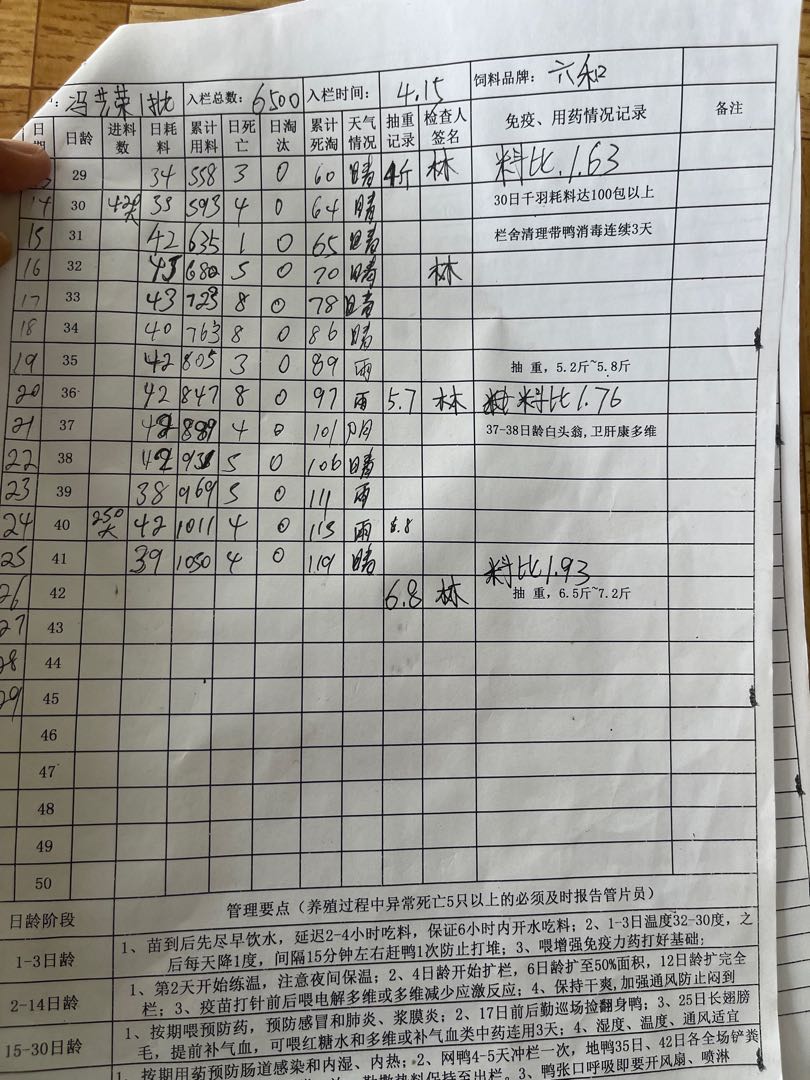 冯芸荣1批 入栏总数: 6500 入栏时间: 4.15 饲料品牌: 六和
日期 日龄 进料数 日耗料 累计用料 日死亡 日淘汰 累计死淘 天气情况 抽重记录 检查人签名 免疫、用药情况记录 备注
29 34 558 3 0 60 晴 4斤 林 料比1.63
14 30 420大 35 593 4 0 64 晴 30日千羽耗料达100包以上
15 31 42 635 1 0 65 晴 栏舍清理带鸭消毒连续3天
16 32 45 680 5 0 70 晴 林
17 33 43 723 8 0 78 晴
18 34 40 763 8 0 86 晴
19 35 42 805 3 0 89 雨 抽 重, 5.2斤~5.8斤
20 36 42 847 8 0 97 雨 5.7 林 料比1.76
21 37 42 889 4 0 101 阴 37-38日龄白头翁,卫肝康多维
22 38 42 931 5 0 106 晴
23 39 38 969 5 0 111 雨
24 40 250大 42 1011 4 0 115 雨 6.8
25 41 39 1050 4 0 119 晴 料比1.93
26 42 6.8 林 抽 重, 6.5斤~7.2斤
27 43
28 44
29 45
46
47
48
49
50
日龄阶段 管理要点（养殖过程中异常死亡5只以上的必须及时报告管片员）
1-3日龄 1、苗到后先尽早饮水，延迟2-4小时吃料，保证6小时内开水吃料；2、1-3日温度32-30度，之
后每天降1度，间隔15分钟左右赶鸭1次防止打堆；3、喂增强免疫力药打好基础;
2-14日龄 1、第2天开始练温，注意夜间保温；2、4日龄开始扩栏，6日龄扩至50%面积，12日龄扩完全
栏；3、疫苗打针前后喂电解多维或多维减少应激反应；4、保持干爽,加强通风防止闷到
15-30日龄 1、按期喂预防药，预防感冒和肺炎、浆膜炎；2、17日前后勤巡场捡翻身鸭；3、25日长翅膀
毛，提前补气血，可喂红糖水和多维或补气血类中药连用3天；4、湿度、温度、通风适宜
1、按期用药预防肠道感染和内湿、内热；2、网鸭4-5天冲栏一次，地鸭35日、42日各全场铲粪
勤撒垫料保持至出栏。3、鸭张口呼吸即要开风扇、喷淋